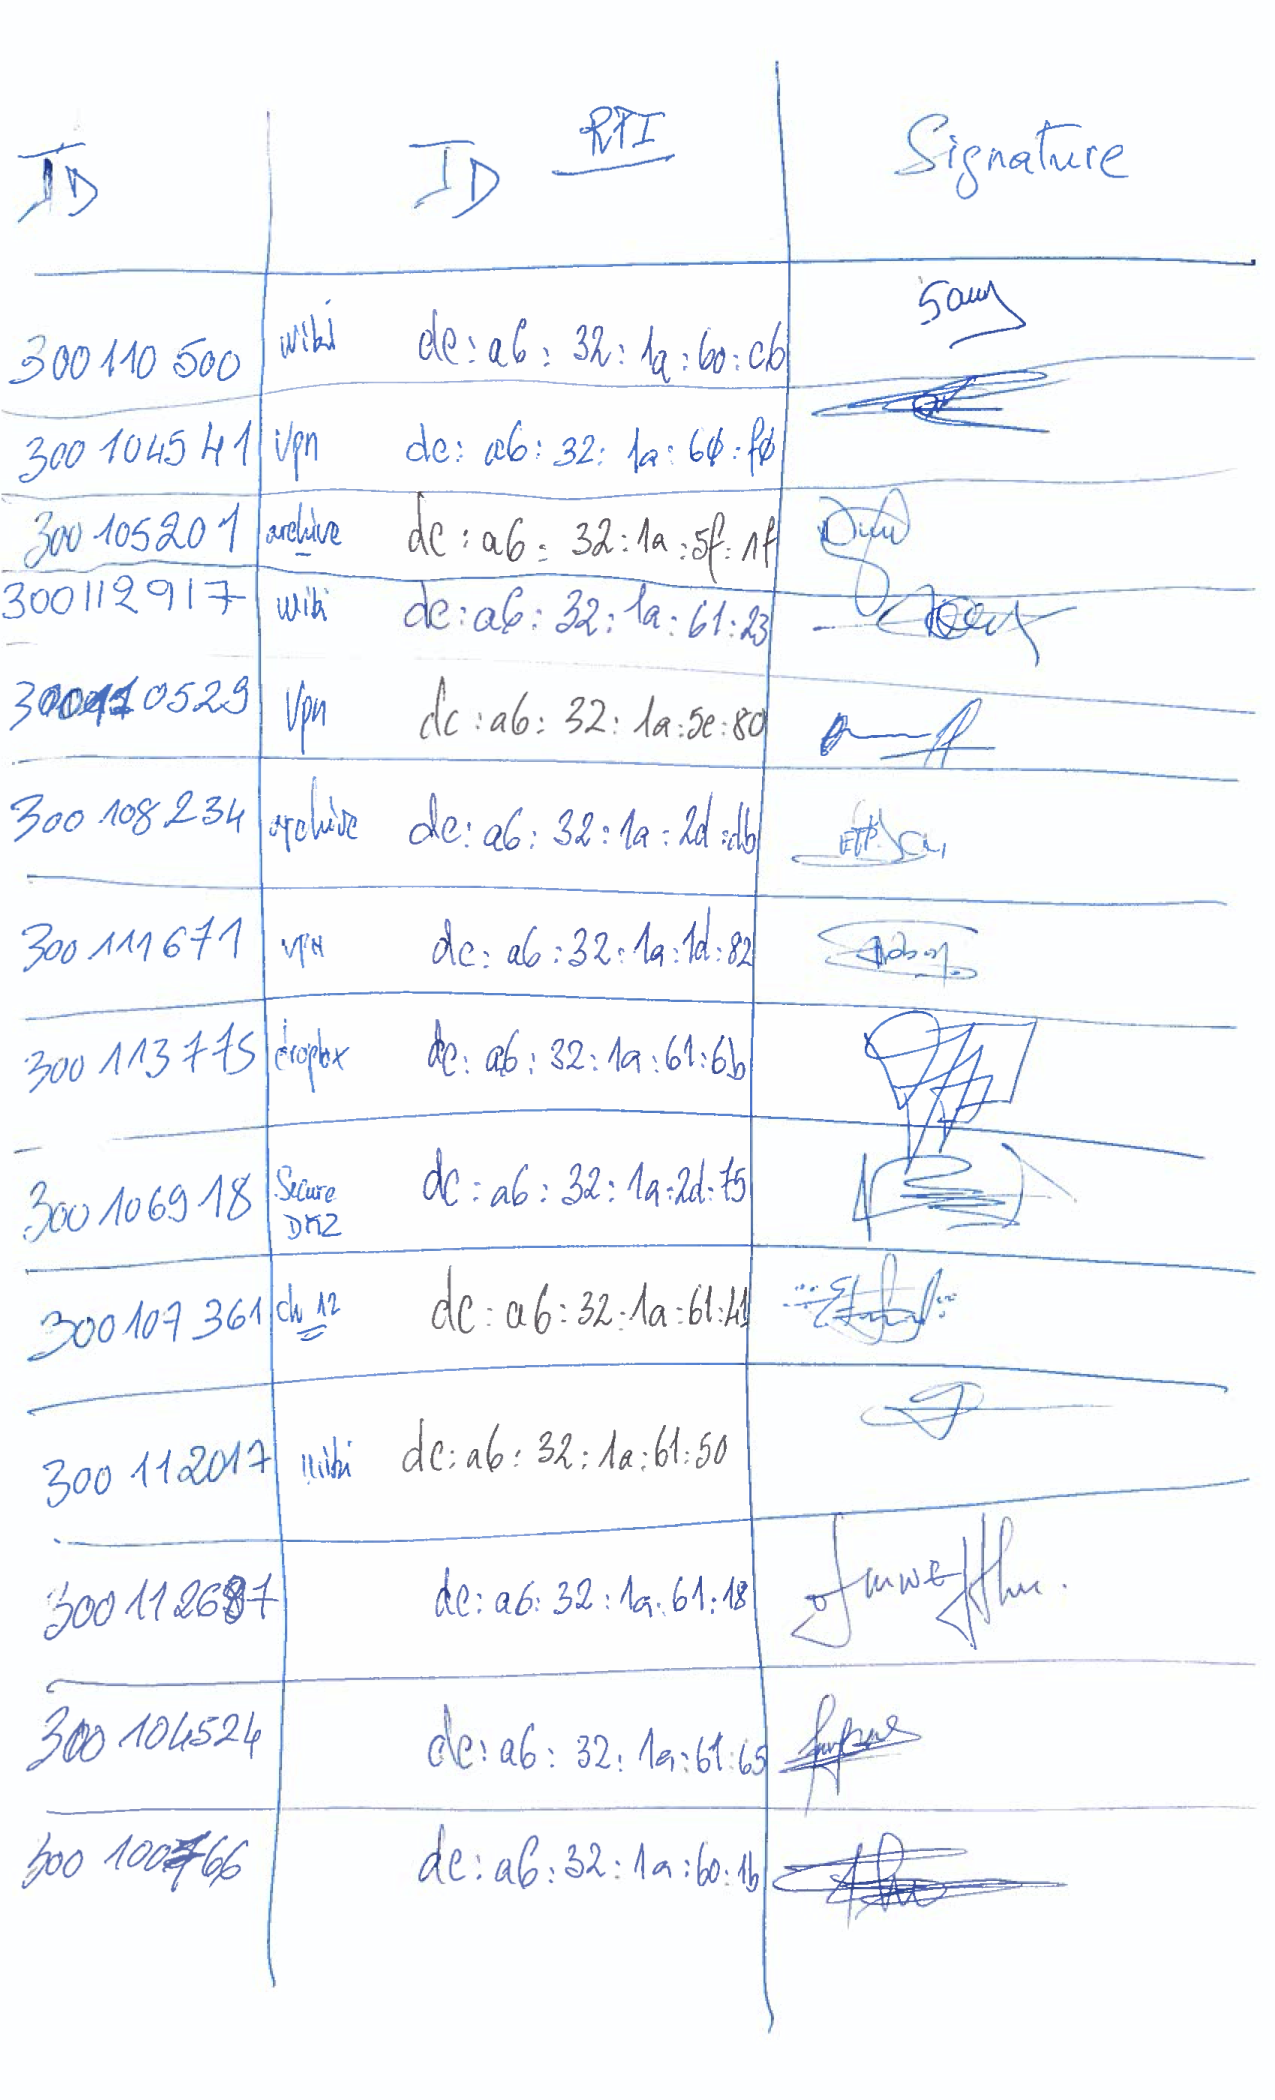 ID ID RPI Signature
300110500 wiki dc:a6:32:1a:60:cb Samy
300104541 Vpn dc:a6:32:1a:60:f0
300105201 archive dc:a6:32:1a:5f:1f
300112917 wiki dc:a6:32:1a:61:23
300110529 Vpn dc:a6:32:1a:5e:80
300108234 archive dc:a6:32:1a:2d:db
300111671 VPN dc:a6:32:1a:1d:82
300113775 dropbox dc:a6:32:1a:61:6b
300106918 Secure dc:a6:32:1a:2d:75
DMZ
300107361 ch 12 dc:a6:32:1a:61:41
300112017 wiki dc:a6:32:1a:61:50
300112687 dc:a6:32:1a:61:18
300104524 dc:a6:32:1a:61:65
300100766 dc:a6:32:1a:60:1b